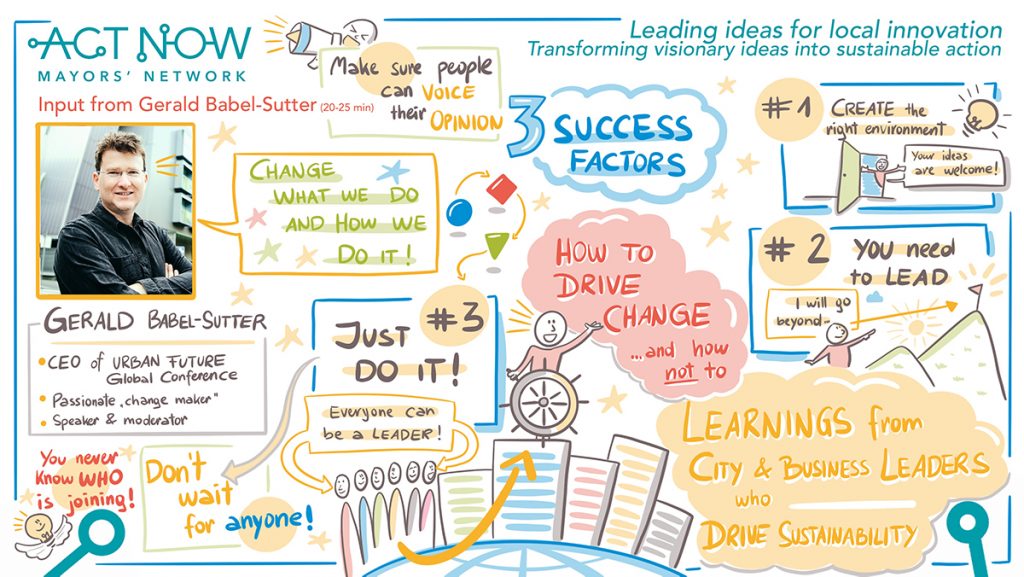 ACT NOW
MAYORS' NETWORK
Input from Gerald Babel-Sutter (20-25 min)
Make sure people
can VOICE
their OPINION
Leading ideas for local innovation
Transforming visionary ideas into sustainable action
3 SUCCESS
FACTORS
#1 CREATE the
right environment
Your ideas
are welcome!
CHANGE
WHAT WE DO
AND HOW WE
DO IT!
HOW TO
DRIVE
CHANGE
...and how
not to
#2 YOU need
to LEAD
I will go
beyond-
GERALD BABEL-SUTTER
• CEO of URBAN FUTURE
Global Conference
• Passionate „change maker"
• Speaker & moderator
#3
JUST
DO IT!
Everyone can
be a LEADER!
You never
know WHO
is joining!
Don't
wait
for anyone!
LEARNINGS from
CITY & BUSINESS LEADERS
WHO
DRIVE SUSTAINABILITY